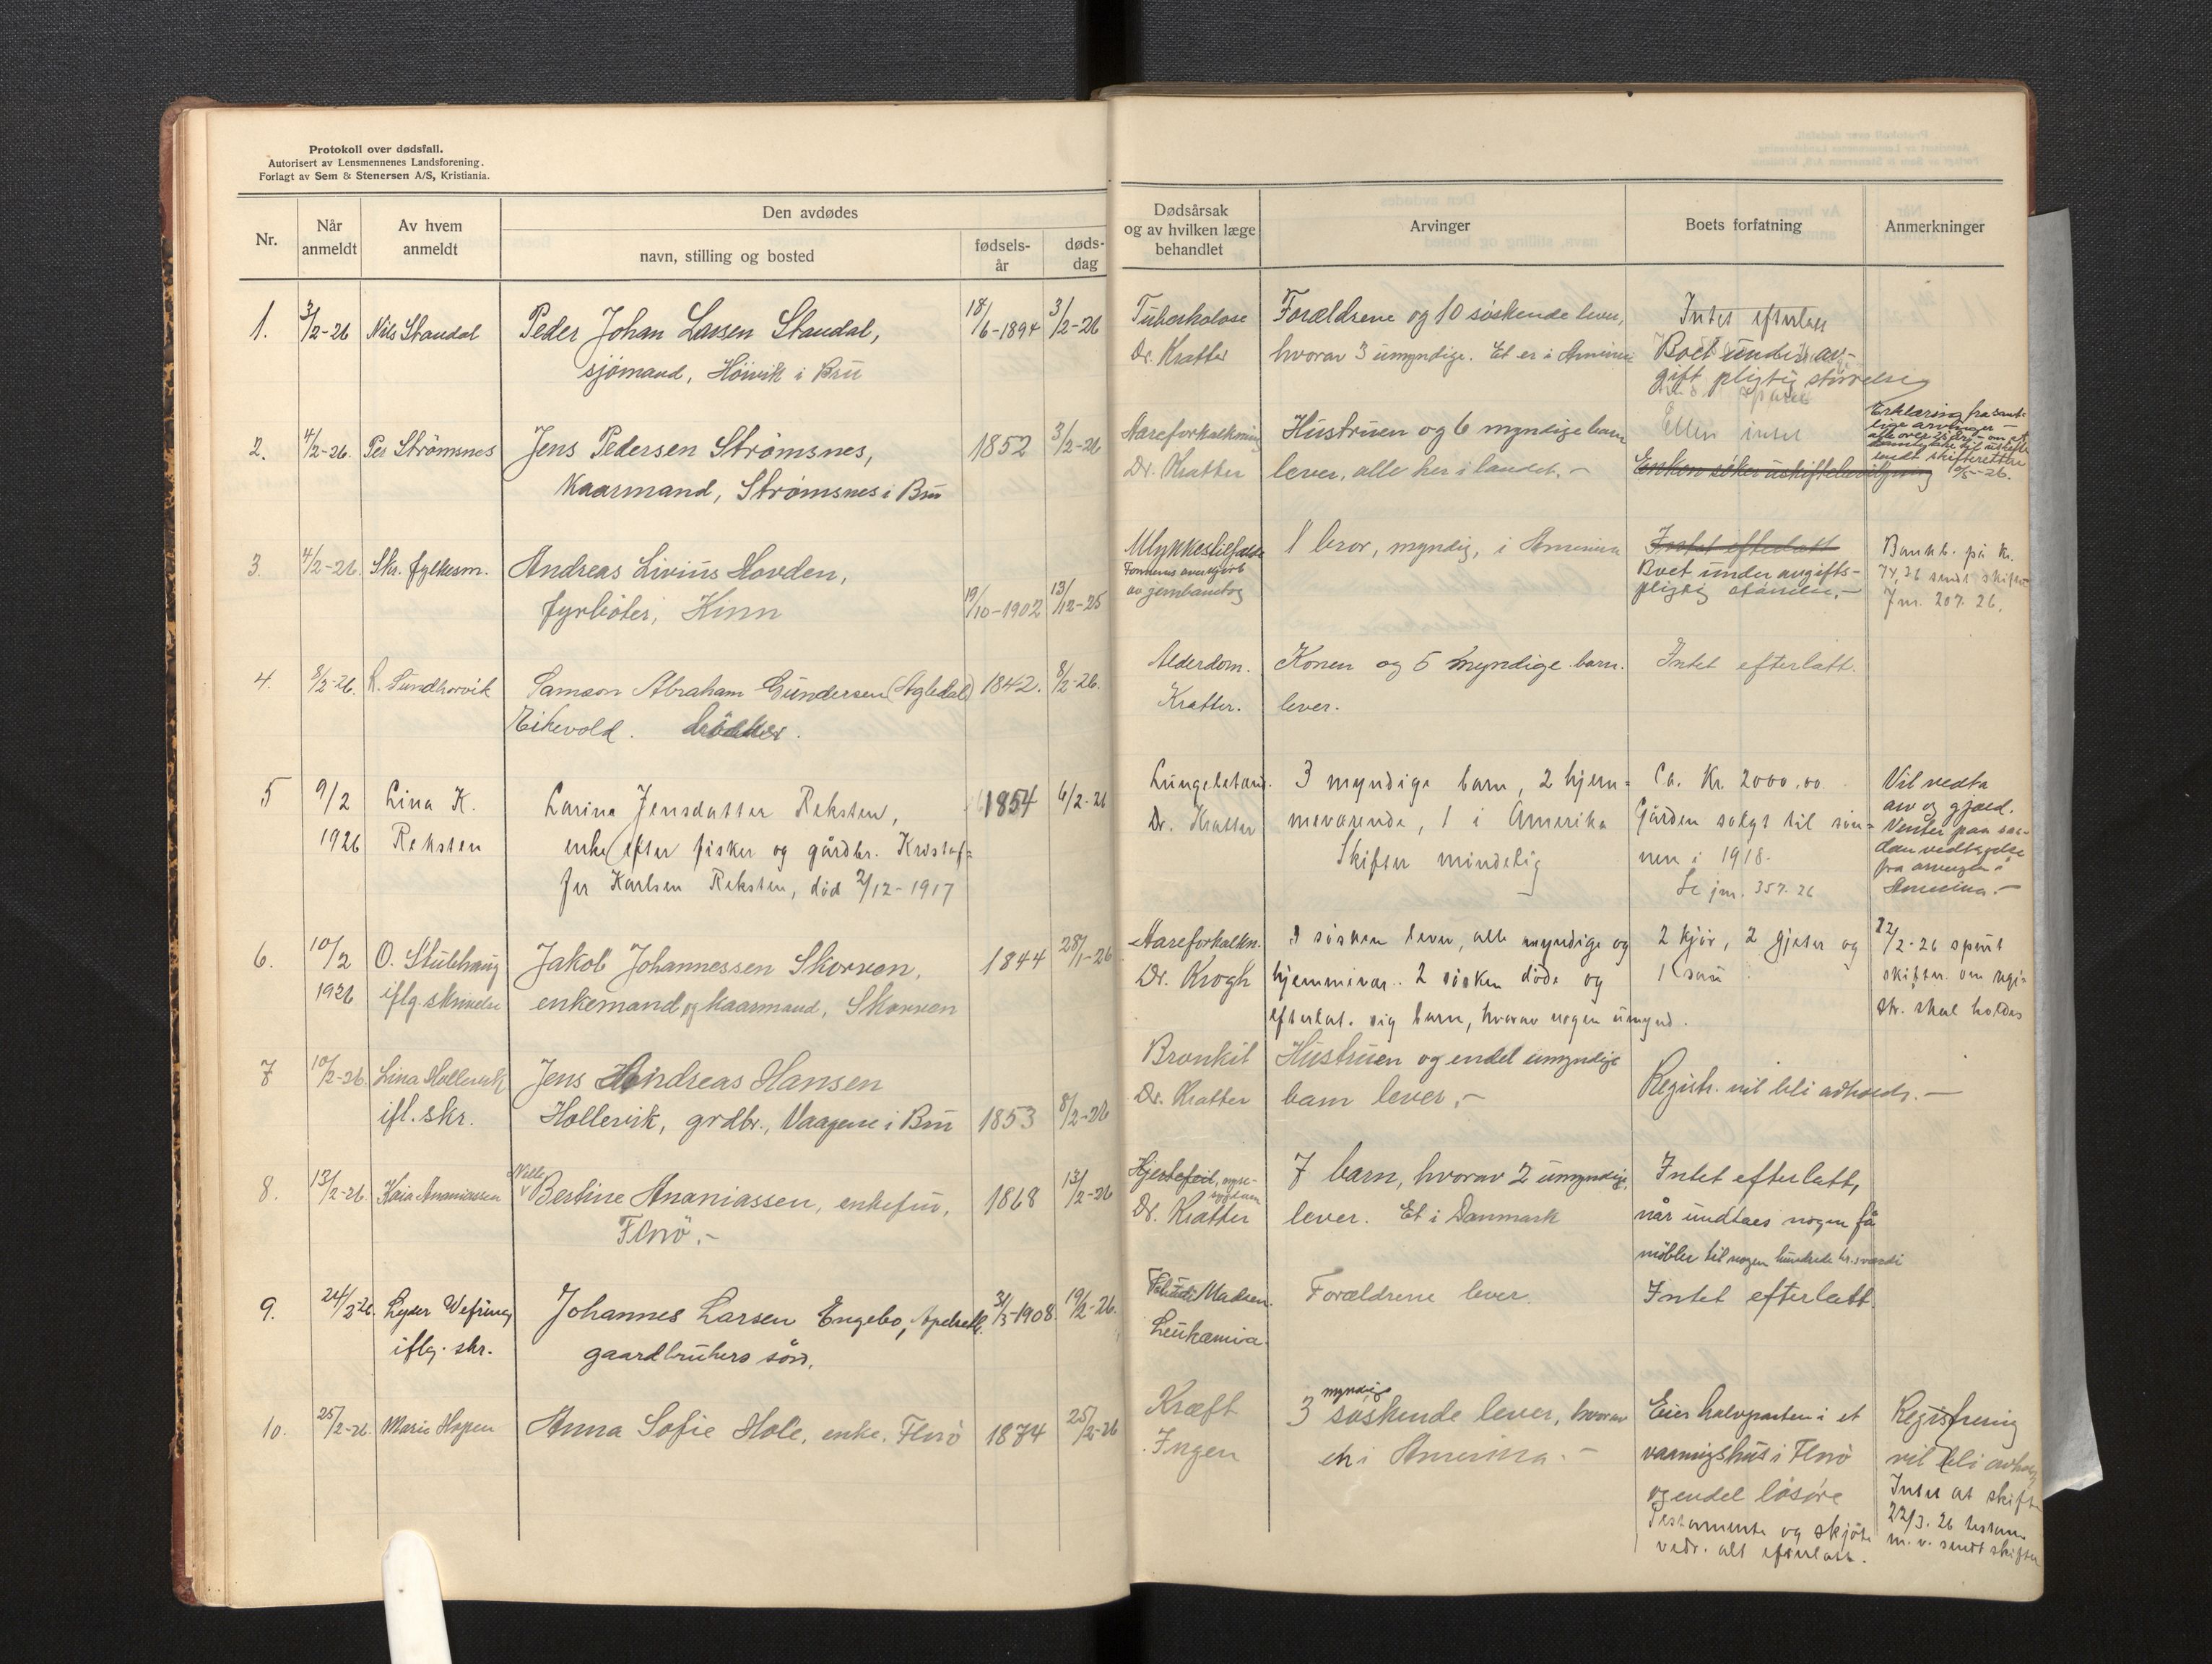 Protokoll over dødsfall.
Autorisert av Lensmennenes Landsforening.
Forlagt av Sem & Stenersen A/S, Kristiania.
Nr.
Når anmeldt
Av hvem anmeldt
Den avdødes
navn, stilling og bosted
fødsels-år
døds-dag
Dødsårsak og av hvilken læge behandlet
Arvinger
Boets forfatning
Anmerkninger
1. 3/2-26 Nils Standal
Peder Johan Larsen Standal,
sjömand, Höivik i Bru
18/6-1894 3/2-26
Tuberkolose
Dr. Kratter
Forældrene og 10 söskende lever,
hvorav 3 umyndige. Et er i Amerika
Intet efterlatt
Boet under av-
gift pligtig störrelse
2. 4/2-26. Per Strömsnes
Jens Pedersen Strömsnes,
Kaarmand, Strömsnes i Bru
1852 3/2-26
Aareforkalkning
Dr. Kratter
Hustruen og 6 myndige barn
lever, alle her i landet. -
Ellers intet
Enken söker uskiftebevilgning
Erklæring fra samt-
lige arvinger -
3. 4/2-26. Skr. fylkesm.
Andreas Livius Hovden,
fyrböter, Kinn
19/10-1902 13/12-25
Ulykkestilfælde
av jernbanetog
1 bror, myndig, i Amerika
Intet efterlatt
Boet under avgifts-
pligtig störrelse. -
Bankb. på kr.
74,36 sendt skifter.
Jnr. 207. 26.
4. 8/2-26. R. Sundhorvik
Samson Abraham Gundersen (Agledal)
Eikevold. bödker.
1842. 8/2-26.
Alderdom.
Kratter.
Konen og 5 myndige barn.
lever.
Intet efterlatt.
5 9/2 1926 Lina K. Reksten
Larina Jensdatter Reksten,
enke efter fisker og gårdbr. Kristof-
fer Karlsen Reksten, död 2/12-1917
1854 6/2-26
Lungebetænd.
Dr. Kratter
3 myndige barn, 2 hjem-
meværende, 1 i Amerika
Skifter mindelig
Ca. Kr. 2000.00
Gården solgt til søn-
nen i 1918.
Se jnr. 357. 26
Vil vedta
arv og gjæld.
Venter paa saa-
dan vedtagelse
fra arvingen i
Amerika. -
6. 10/2 1926 O. Stubhaug iflg. skrivelse
Jakob Johannessen Skorven,
enkemand og kaarmand, Skorven
1844 28/1-26
Aareforkalkn.
Dr. Krogh
søsken lever, alle myndige og
hjemmevær. 2 søsken döde og
efterlat. sig barn, hvorav nogen umynd.
2 kjör, 2 gjeter og
1 sau
22/2-26 spurt
skifter. om regi-
str. skal holdes
7 10/2-26. Lina Hollevik ifl. skr.
Jens Andreas Hansen
Hollevik, grdbr., Vaagene i Bru
1853 8/2-26
Bronkit
Dr. Kratter
Hustruen og endel umyndige
barn lever. -
Registr. vil bli avholdt. -
8. 13/2-26. Kaia Ananiassen
Nille
Bertine Ananiassen, enkefru,
Florö. -
1868 13/2-26
Hjertefeil, nyre-
sygdom
Dr. Kratter
7 barn, hvorav 2 umyndige,
lever. Et i Danmark
Intet efterlatt,
når undtaes nogen få
möbler til nogen hundrede kr.s værdi
9. 24/2-26. Lyder Wefring iflg. skr.
Johannes Larsen Engebo,
gaardbrukers sön.
31/3-1908. 19/2-26.
Madsen.
Leukæmia.
Forældrene lever.
Intet efterlatt.
10. 25/2-26. Marie Hopen
Anna Sofie Hole, enke, Florö
1874 25/2-26
Kræft
Ingen
myndige
3 söskende lever, hvorav
en i Amerika. -
Eier halvparten i et
vaaningshus i Florö
og endel lösöre
Testamente og skjöte
vedr. alt efterlatt.
Registrering
vil bli avholdt
Intet at skifte
22/3. 26 testam.
m. v. sendt skifter